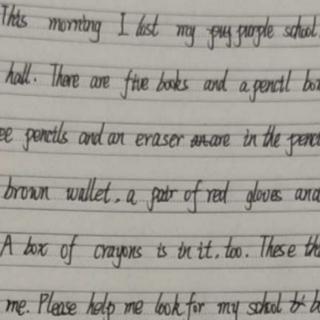 This morning I lost my purple school
hall. There are five books and a pencil box
ee pencils and an eraser are in the penc
brown wallet, a pair of red gloves and
A box of crayons is in it, too. These th
me. Please help me look for my school b